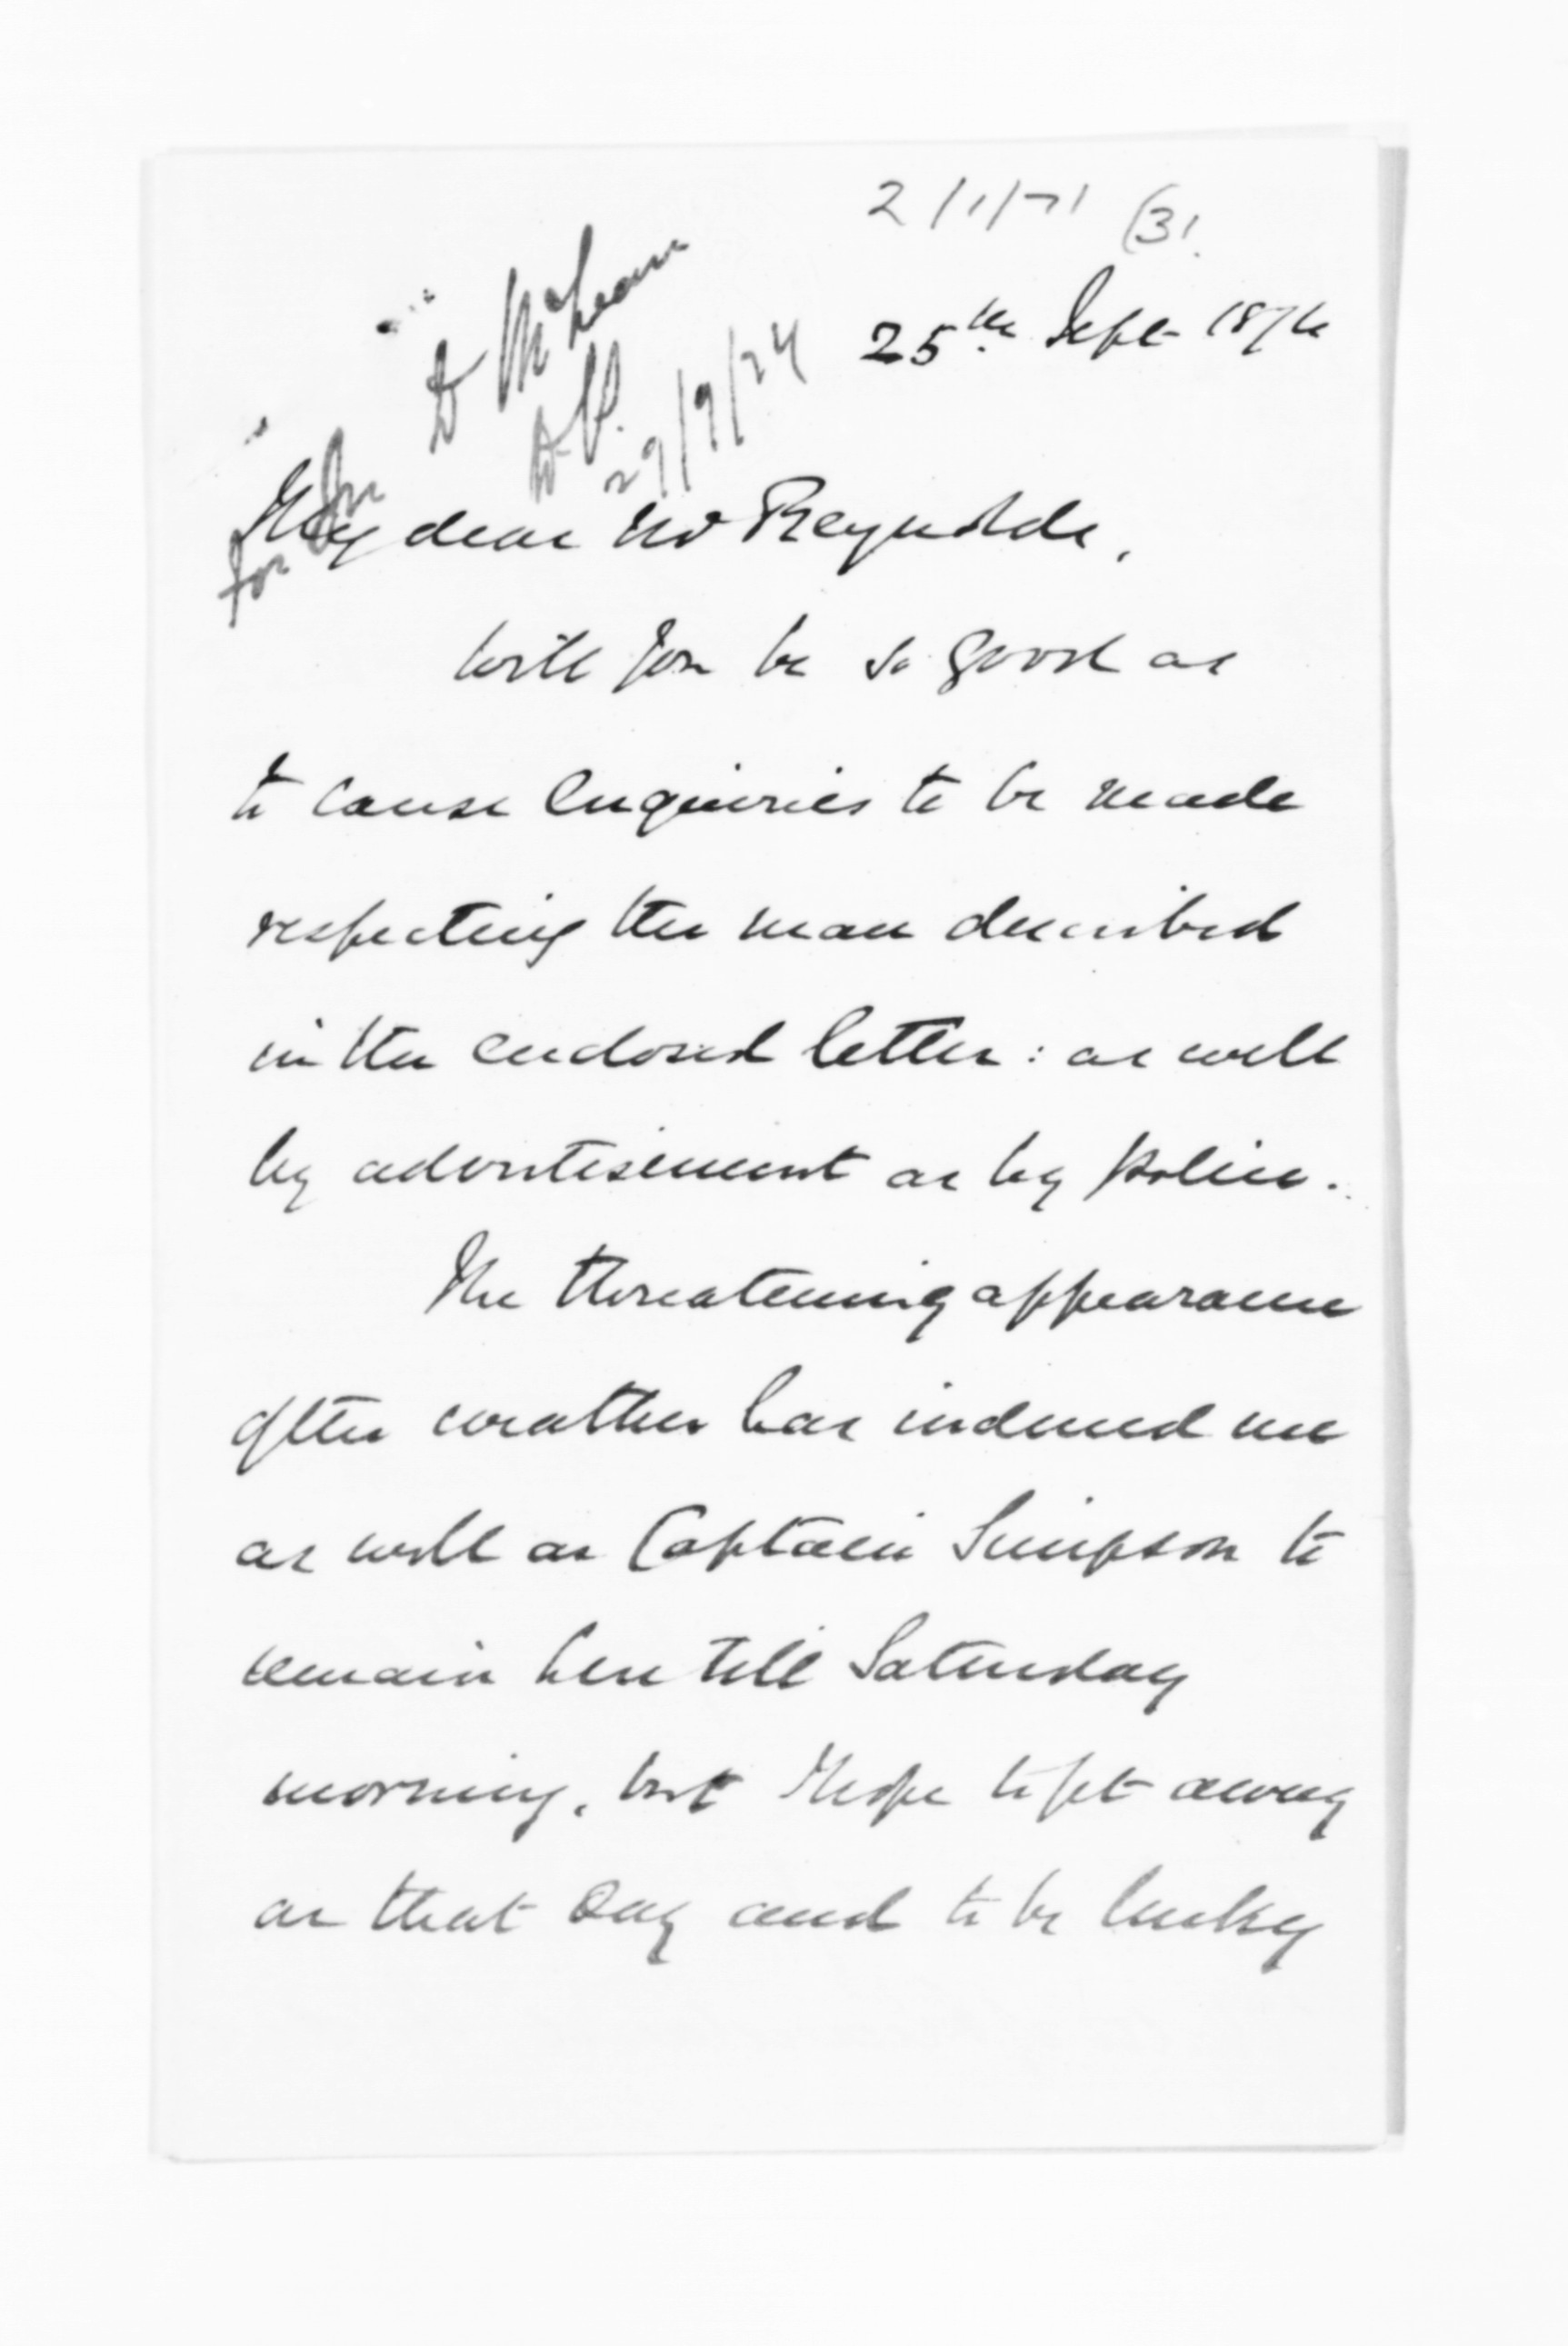 2/1/71 (31.
25th Sept 1874
D McLean
29/9/74
for
My dear Mr Reynolds,
Will you be so good as
to cause enquiries to be made
respecting the man described
in the enclosed letter: as well
by advertisement as by police.
The threatening appearance
of the weather has induced me
as well as Captain Simpson to
remain here till Saturday
morning, but I hope to get away
on that day and to be lucky